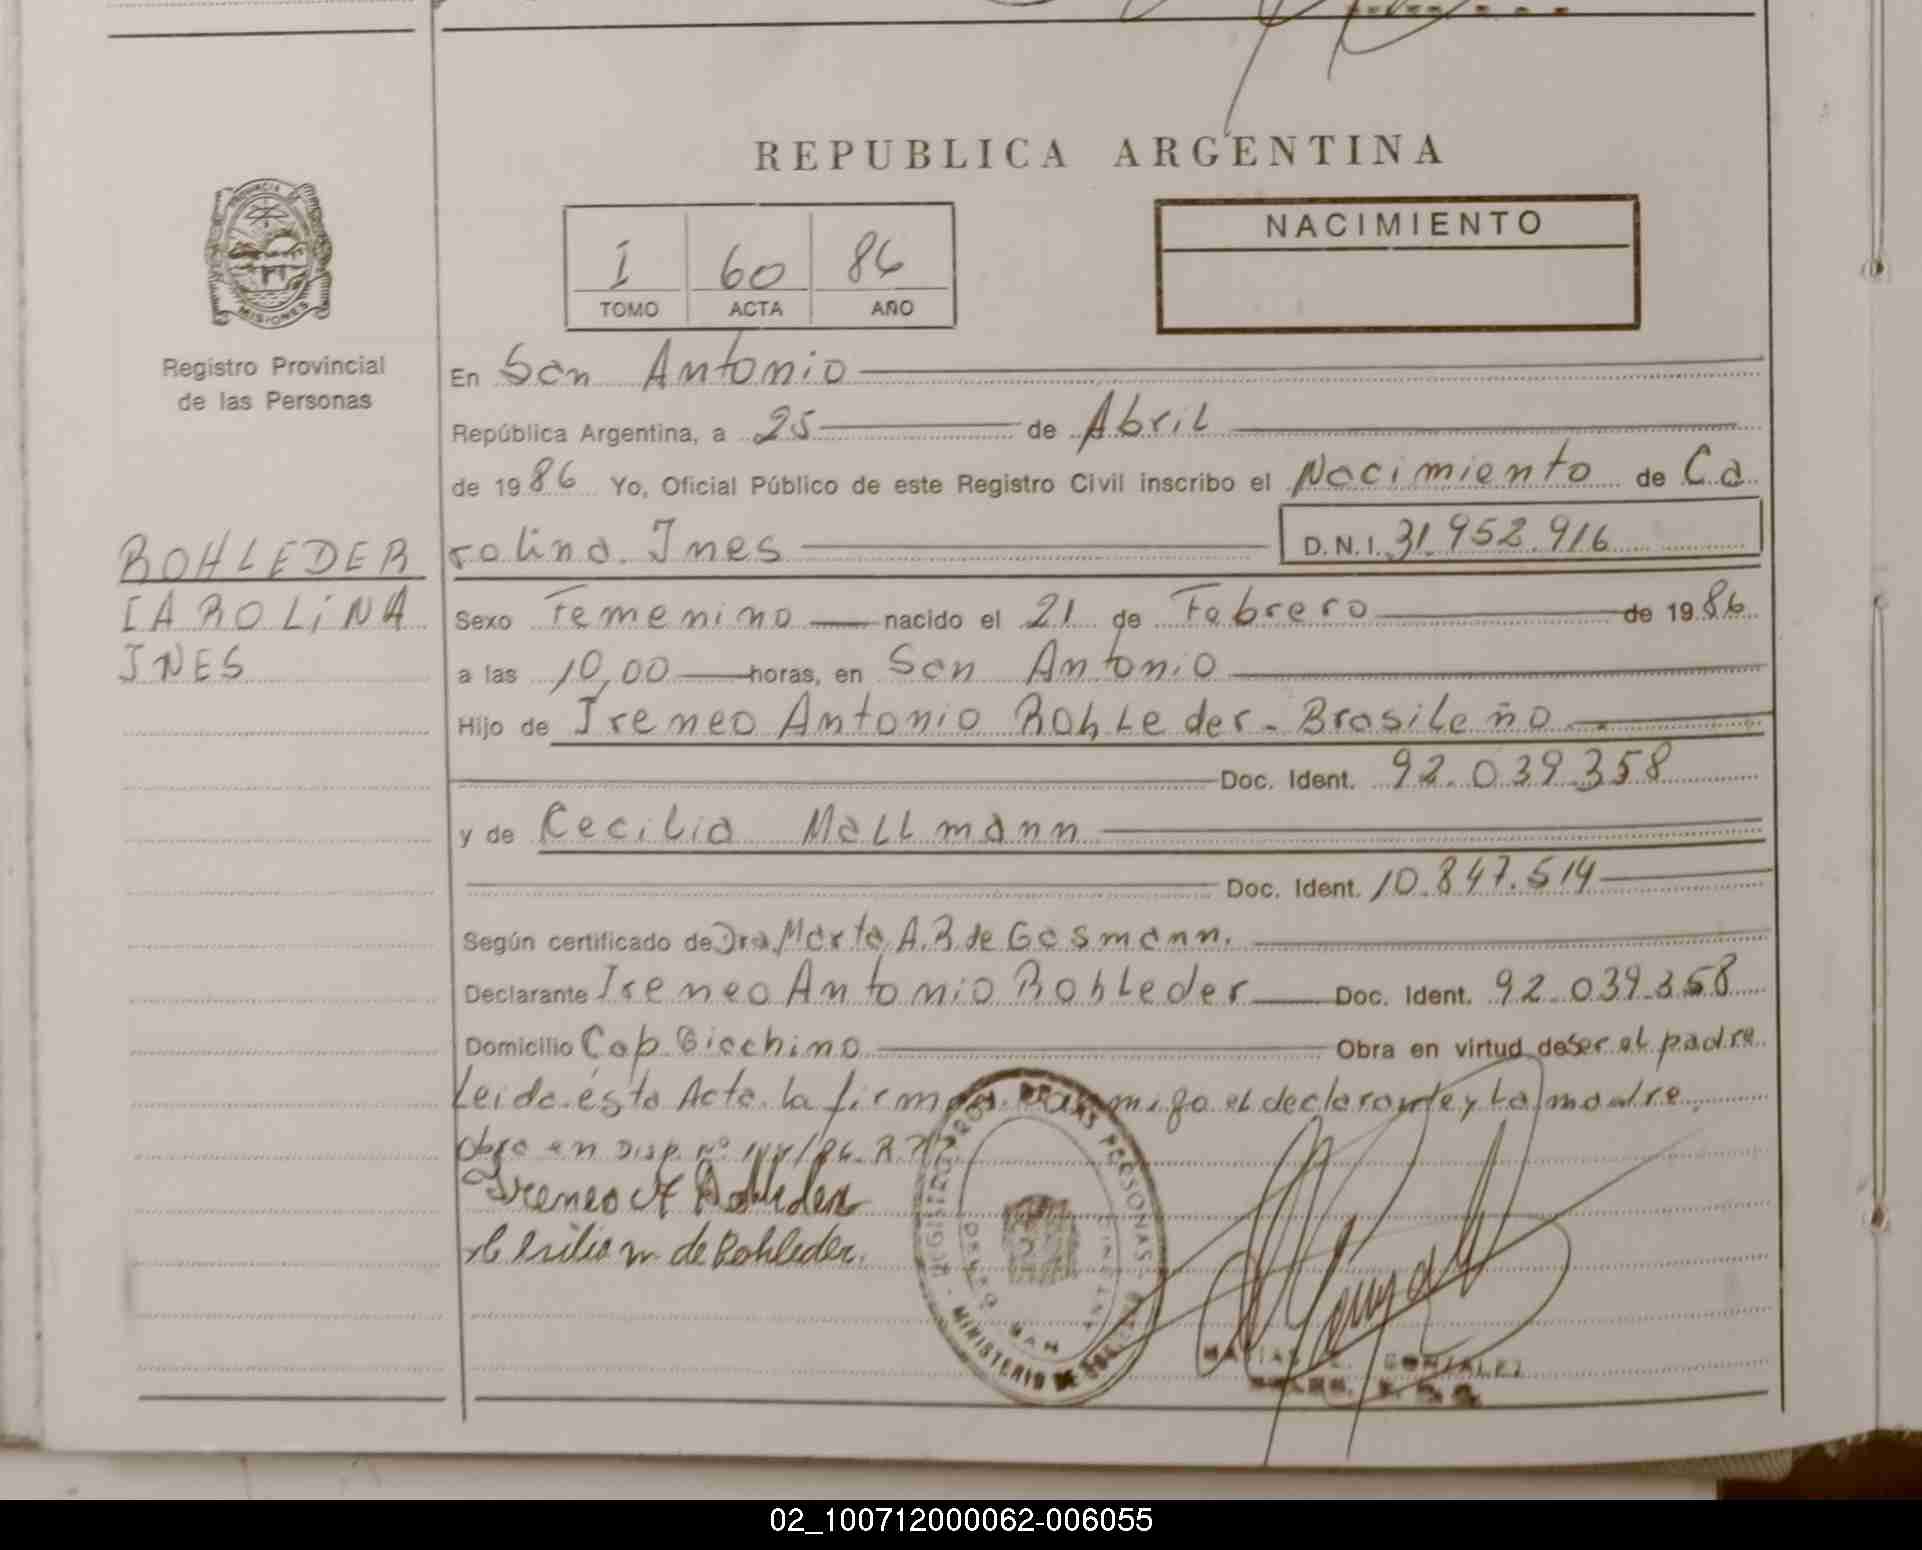 REPUBLICA ARGENTINA
PROVINCIA DE
MISIONES
Registro Provincial
de las Personas
I 60 86
TOMO ACTA AÑO
NACIMIENTO
En San Antonio
República Argentina, a 25 de Abril
de 1986 Yo, Oficial Público de este Registro Civil inscribo el Nacimiento de Ca
rolina Ines D.N.I. 31.952.916
ROHLEDER
CAROLINA
INES
Sexo Femenino nacido el 21 de Febrero de 1986
a las 10,00 horas, en San Antonio
Hijo de Ireneo Antonio Rohleder - Brasileño
Doc. Ident. 92.039.358
y de Cecilia Mallmann
Doc. Ident. 10.847.514
Según certificado de Dra. Marta A.B de Gasmann.
Declarante Ireneo Antonio Rohleder Doc. Ident. 92.039.358
Domicilio Cap. Giachino Obra en virtud de ser el padre
Leida ésta Acta la firman conmigo el declarante y la madre.
Obra en Disp. Nº
Ireneo A Rohleder
Cesilia m de Rohleder.
MINISTERIO DE
PERSONAS
GONZALEZ
02_100712000062-006055